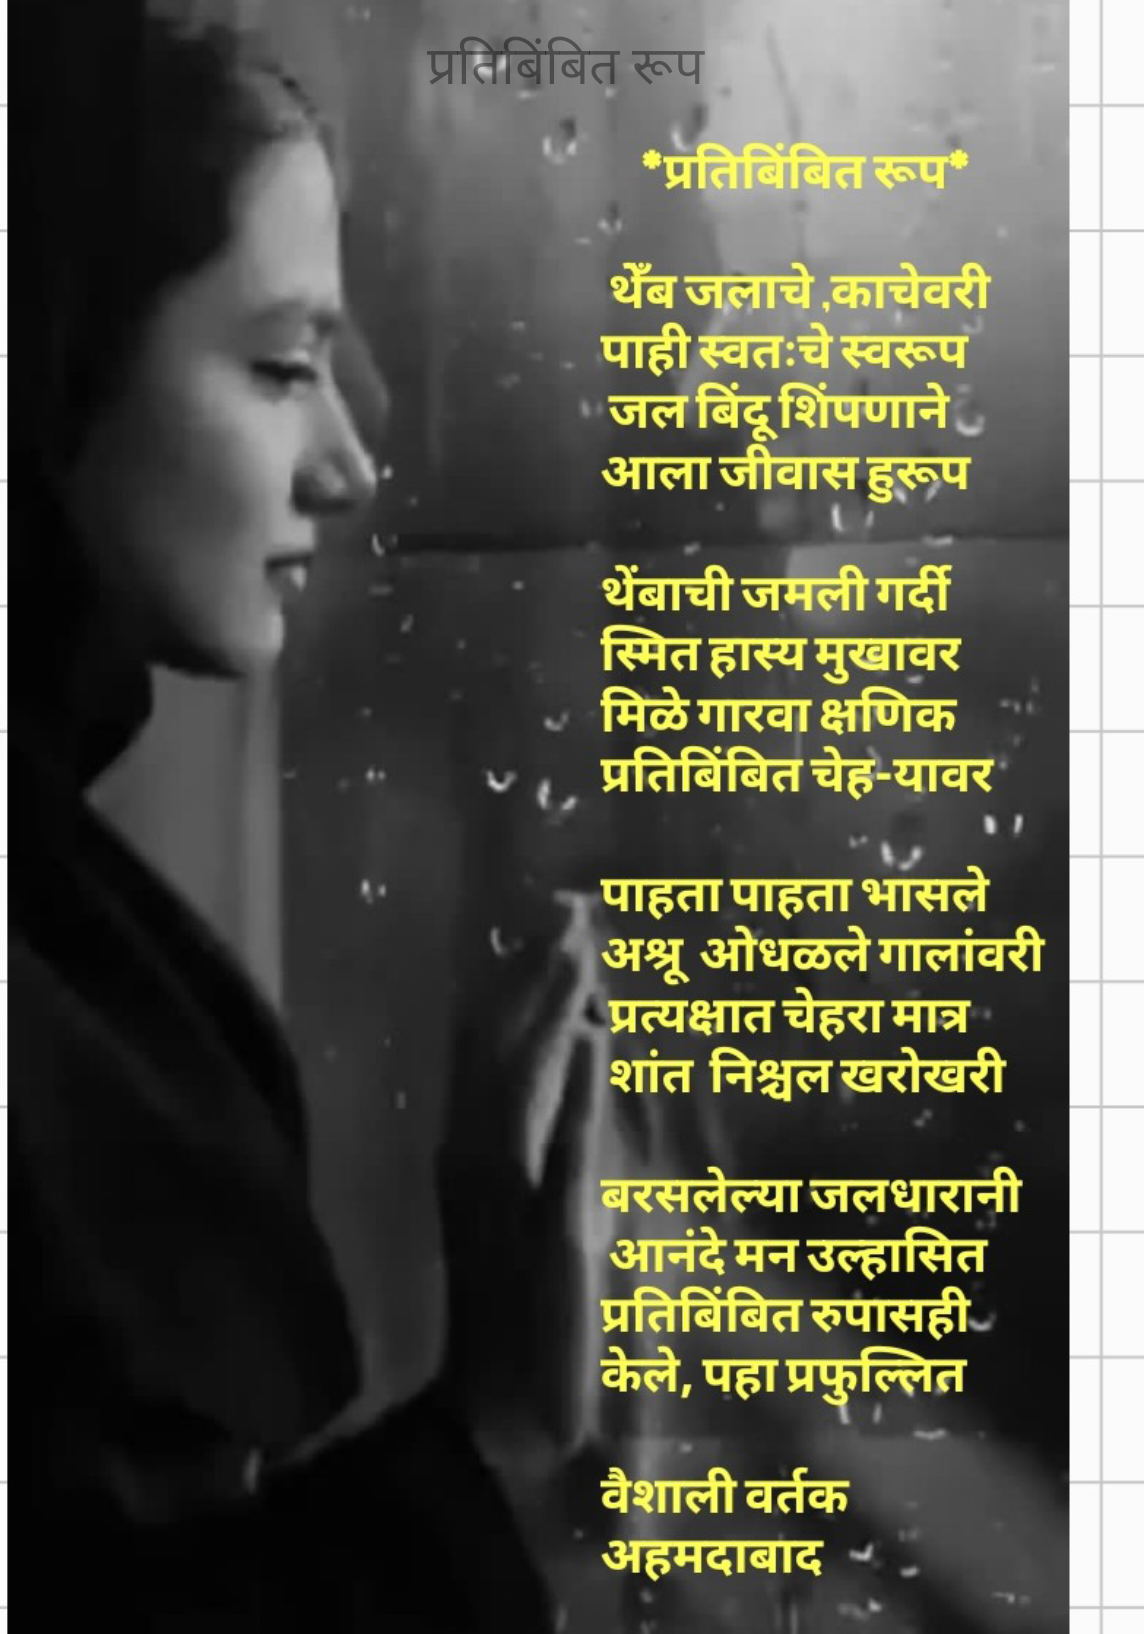 प्रतिबिंबित रूप
*प्रतिबिंबित रूप*
थेँब जलाचे ,काचेवरी
पाही स्वतःचे स्वरूप
जल बिंदू शिंपणाने
आला जीवास हुरूप
थेंबाची जमली गर्दी
स्मित हास्य मुखावर
मिळे गारवा क्षणिक
प्रतिबिंबित चेह-यावर
पाहता पाहता भासले
अश्रू ओधळले गालांवरी
प्रत्यक्षात चेहरा मात्र
शांत निश्चल खरोखरी
बरसलेल्या जलधारानी
आनंदे मन उल्हासित
प्रतिबिंबित रुपासही
केले, पहा प्रफुल्लित
वैशाली वर्तक
अहमदाबाद